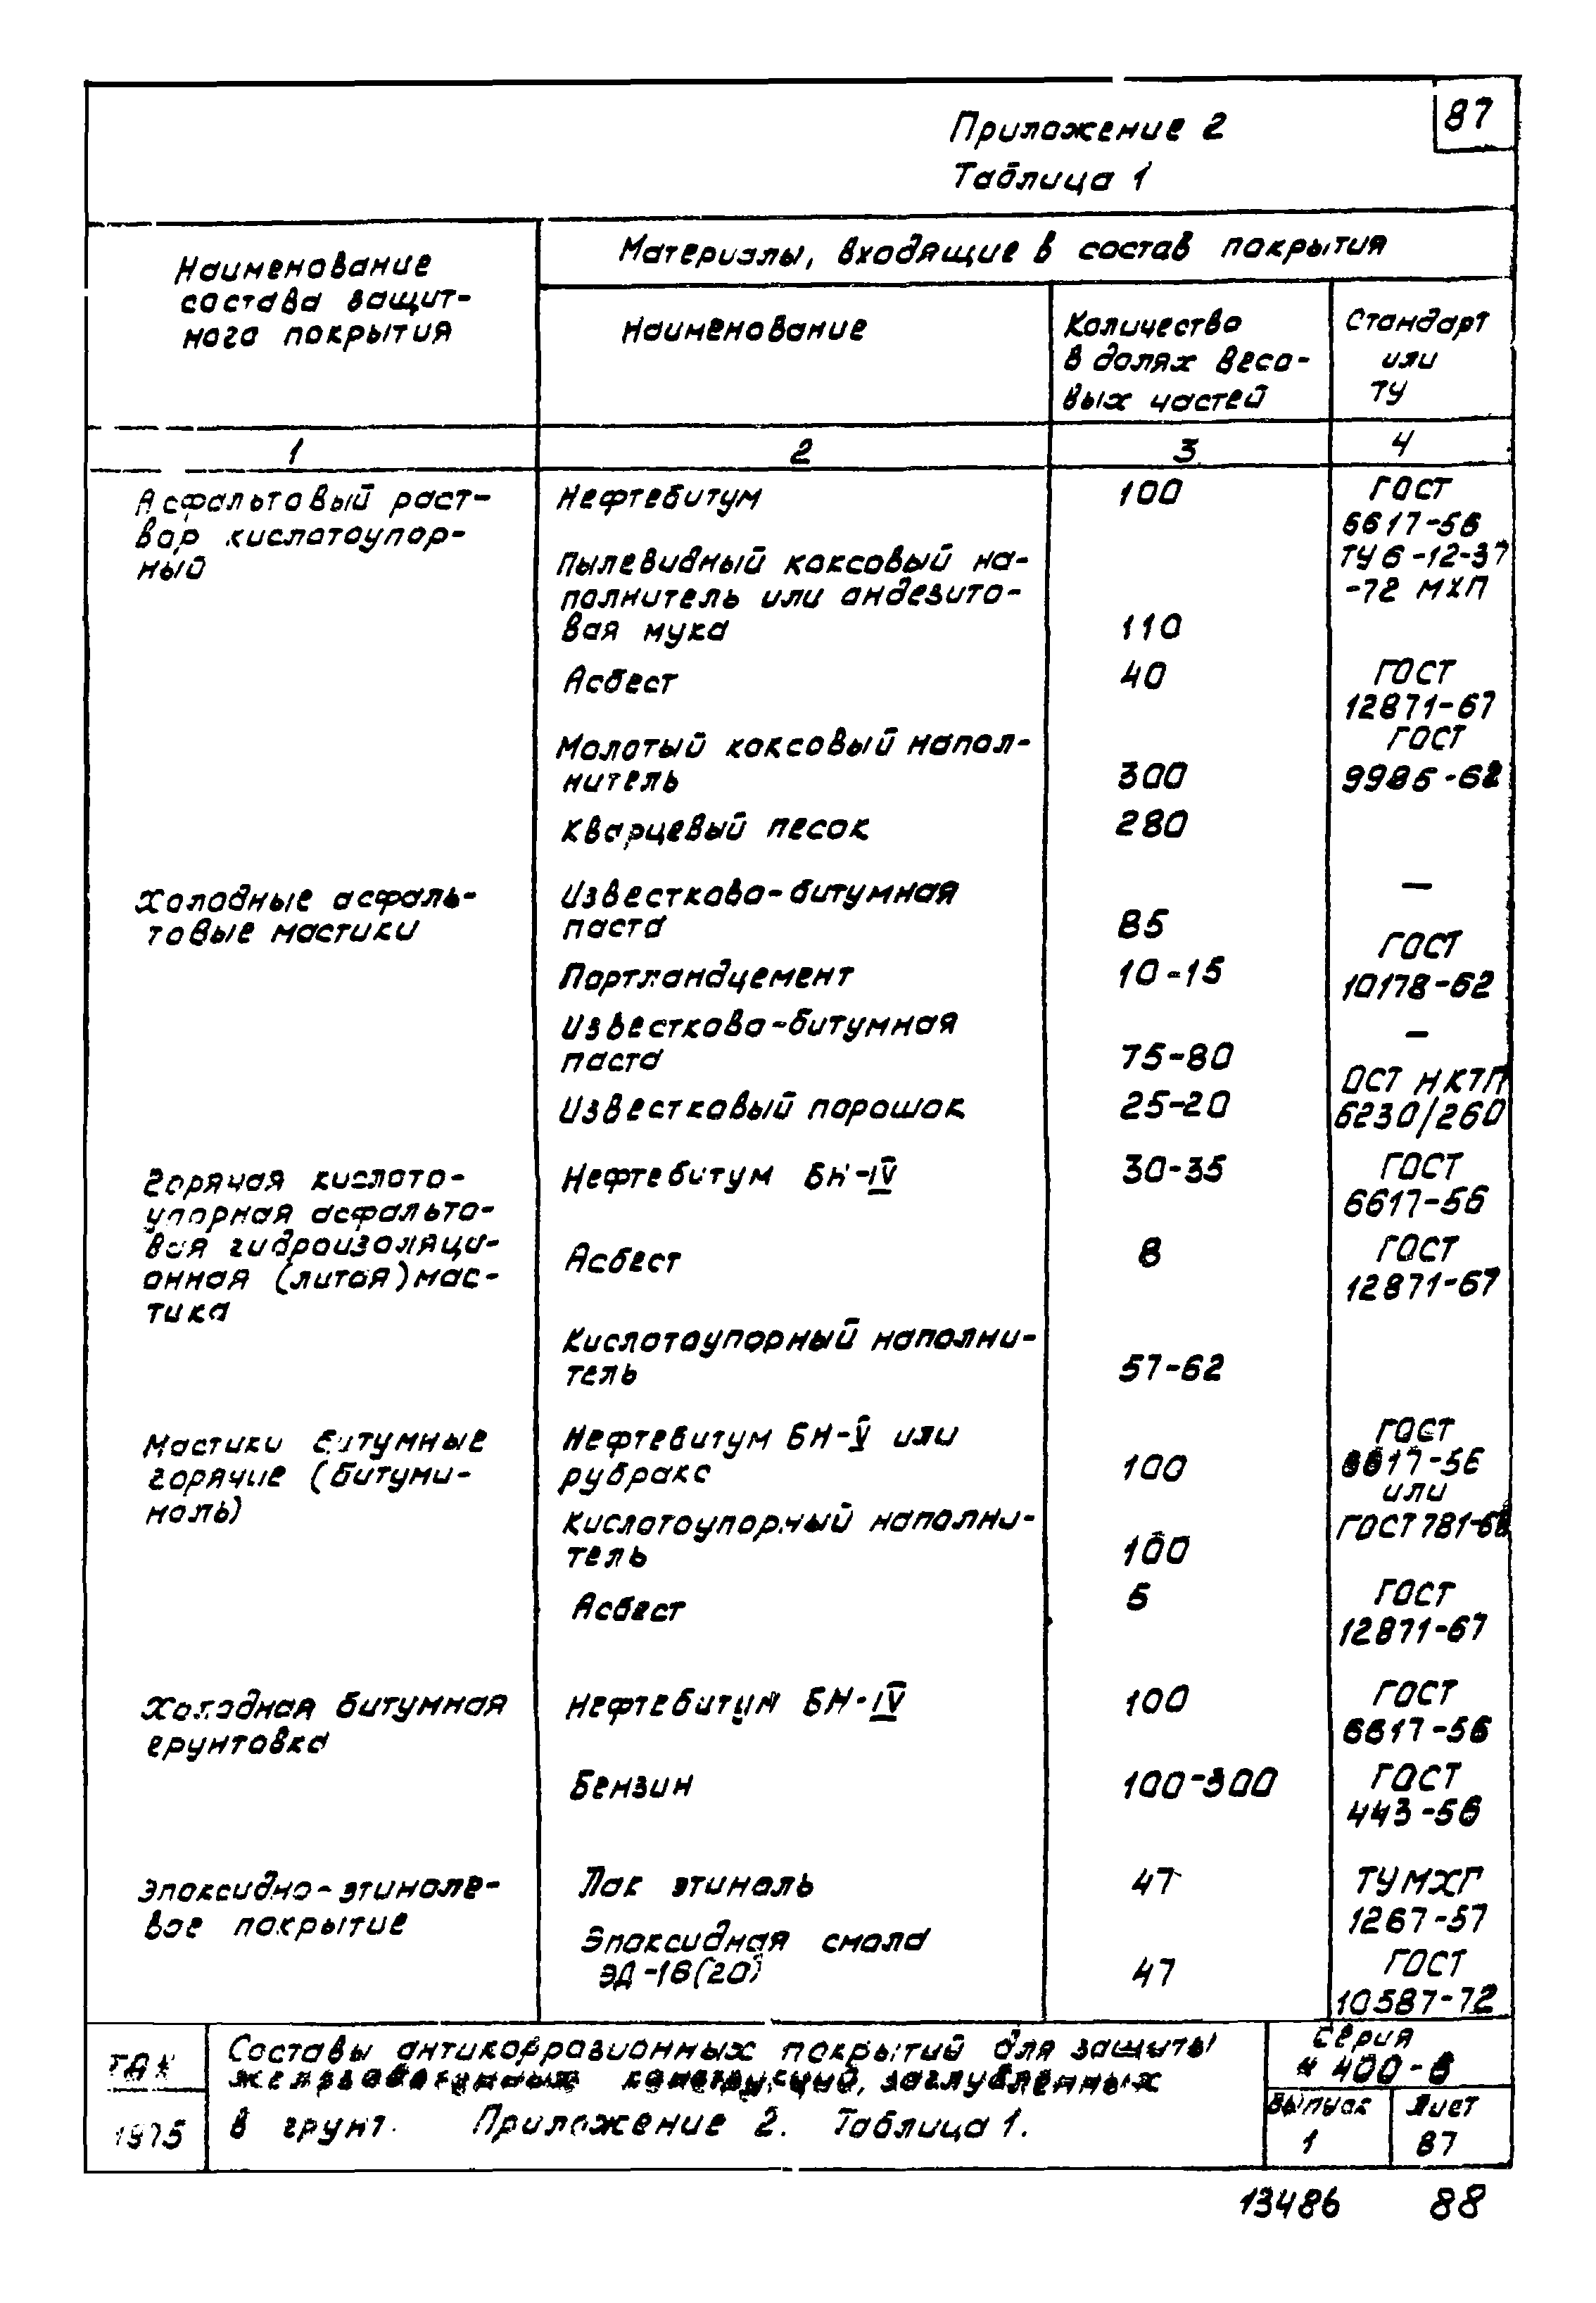 87
Приложение 2
Таблица 1
Наименование
состава защит-
ного покрытия
Материалы, входящие в состав покрытия
Наименование
Количество
в долях весо-
вых частей
Стандарт
или
ТУ
1 2 3 4
Асфальтовый раст-
вор кислотоупор-
ный
Нефтебитум 100 ГОСТ
6617-56
Пылевидный коксовый на-
полнитель или андезито-
вая мука 110
ТУ 6-12-37
-72 МХП
Асбест 40 ГОСТ
12871-67
Молотый коксовый напол-
нитель 300
ГОСТ
9985-62
Кварцевый песок 280
Холодные асфаль-
товые мастики
Известково-битумная
паста 85
—
Портландцемент 10-15 ГОСТ
10178-62
Известково-битумная
паста 75-80
—
Известковый порошок 25-20
ОСТ НКТП
6230/260
Горячая кислото-
упорная асфальто-
вая гидроизоляци-
онная (литая) мас-
тика
Нефтебитум БН-IV 30-35 ГОСТ
6617-56
Асбест 8 ГОСТ
12871-67
Кислотоупорный наполни-
тель 57-62
Мастики битумные
горячие (битуми-
ноль)
Нефтебитум БН-V или
рубракс 100
ГОСТ
6617-56
или
ГОСТ 781-68
Кислотоупорный наполни-
тель 100
Асбест 5 ГОСТ
12871-67
Холодная битумная
грунтовка
Нефтебитум БН-IV 100 ГОСТ
6617-56
Бензин 100-300 ГОСТ
443-56
Эпоксидно-этиноле-
вое покрытие
Лак этиноль 47 ТУ МХП
1267-57
Эпоксидная смола
ЭД-16(20) 47
ГОСТ
10587-72
ТДК
1975
Составы антикоррозионных покрытий для защиты
железобетонных конструкций, заглубленных
в грунт. Приложение 2. Таблица 1.
Серия
400-6
Выпуск
1
Лист
87
13486 88